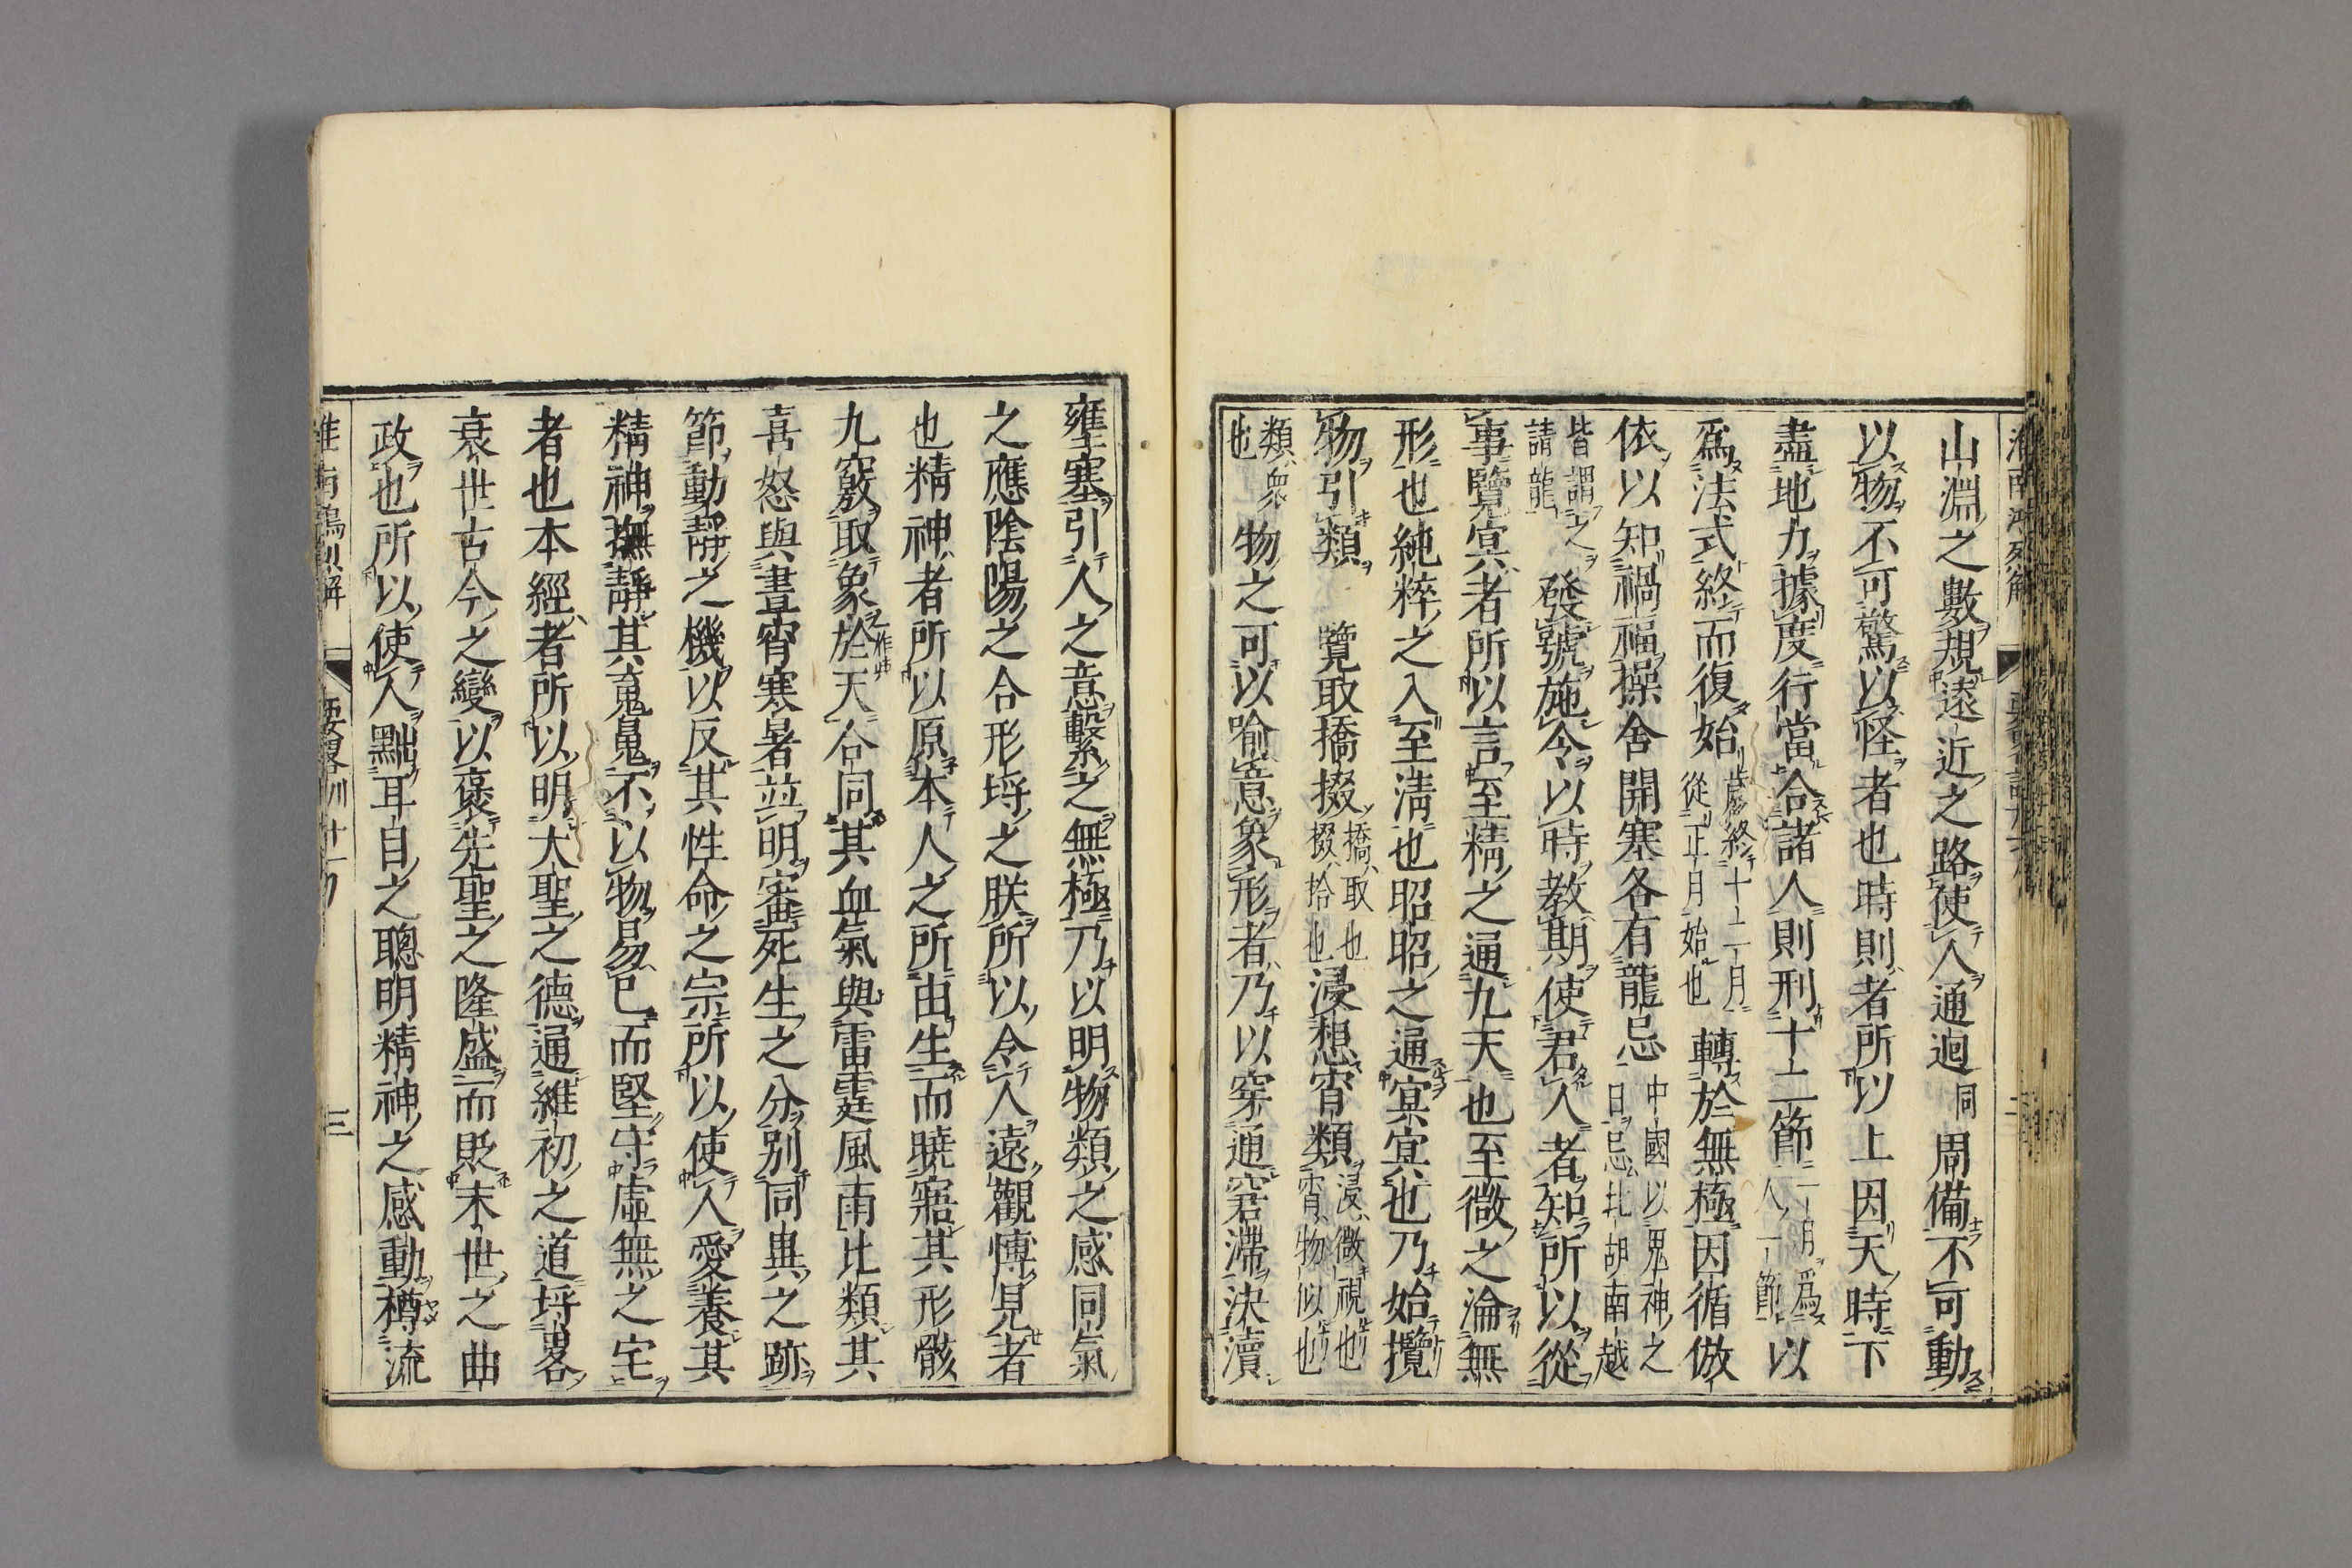 山淵之數規遠近之路使人通迴同周備不可動
以物不可驚以怪者也時則者所以上因天時下
盡地力據度行當合諸人則刑十二節一月為人一節以
爲法式終而復始歲終十二月從正月始也轉於無極因循倣
依以知禍福操舍開塞各有龍忌中國以鬼神之日忌北胡南越
皆謂之請龍發號施令以時教期使君人者知所以從
事覽冥者所以言至精之通九天也至微之淪無
形也純粹之入至淸也昭昭之通冥冥也乃始攬
物引類覽取撟掇撟取也掇拾也浸想宵類浸微視也宵物似也
類衆也物之可以喻意象形者乃以穿通窘滯決瀆
壅塞引人之意繫之無極乃以明物類之感同氣
之應陰陽之合形埒之朕所以令人遠觀博見者
也精神者所以原本人之所由生而曉寤其形骸
九竅取象於天合同其血氣與雷霆風雨比類其
喜怒與晝宵寒暑並明審死生之分別同異之跡
節動靜之機以反其性命之宗所以使人愛養其
精神撫靜其䰟䰟不以物易已而堅守虛無之宅
者也本經者所以明大聖之德通維初之道埒畧
衰世古今之變以褒先聖之隆盛而貶末世之曲
政也所以使人黜耳目之聰明精神之感動樽流